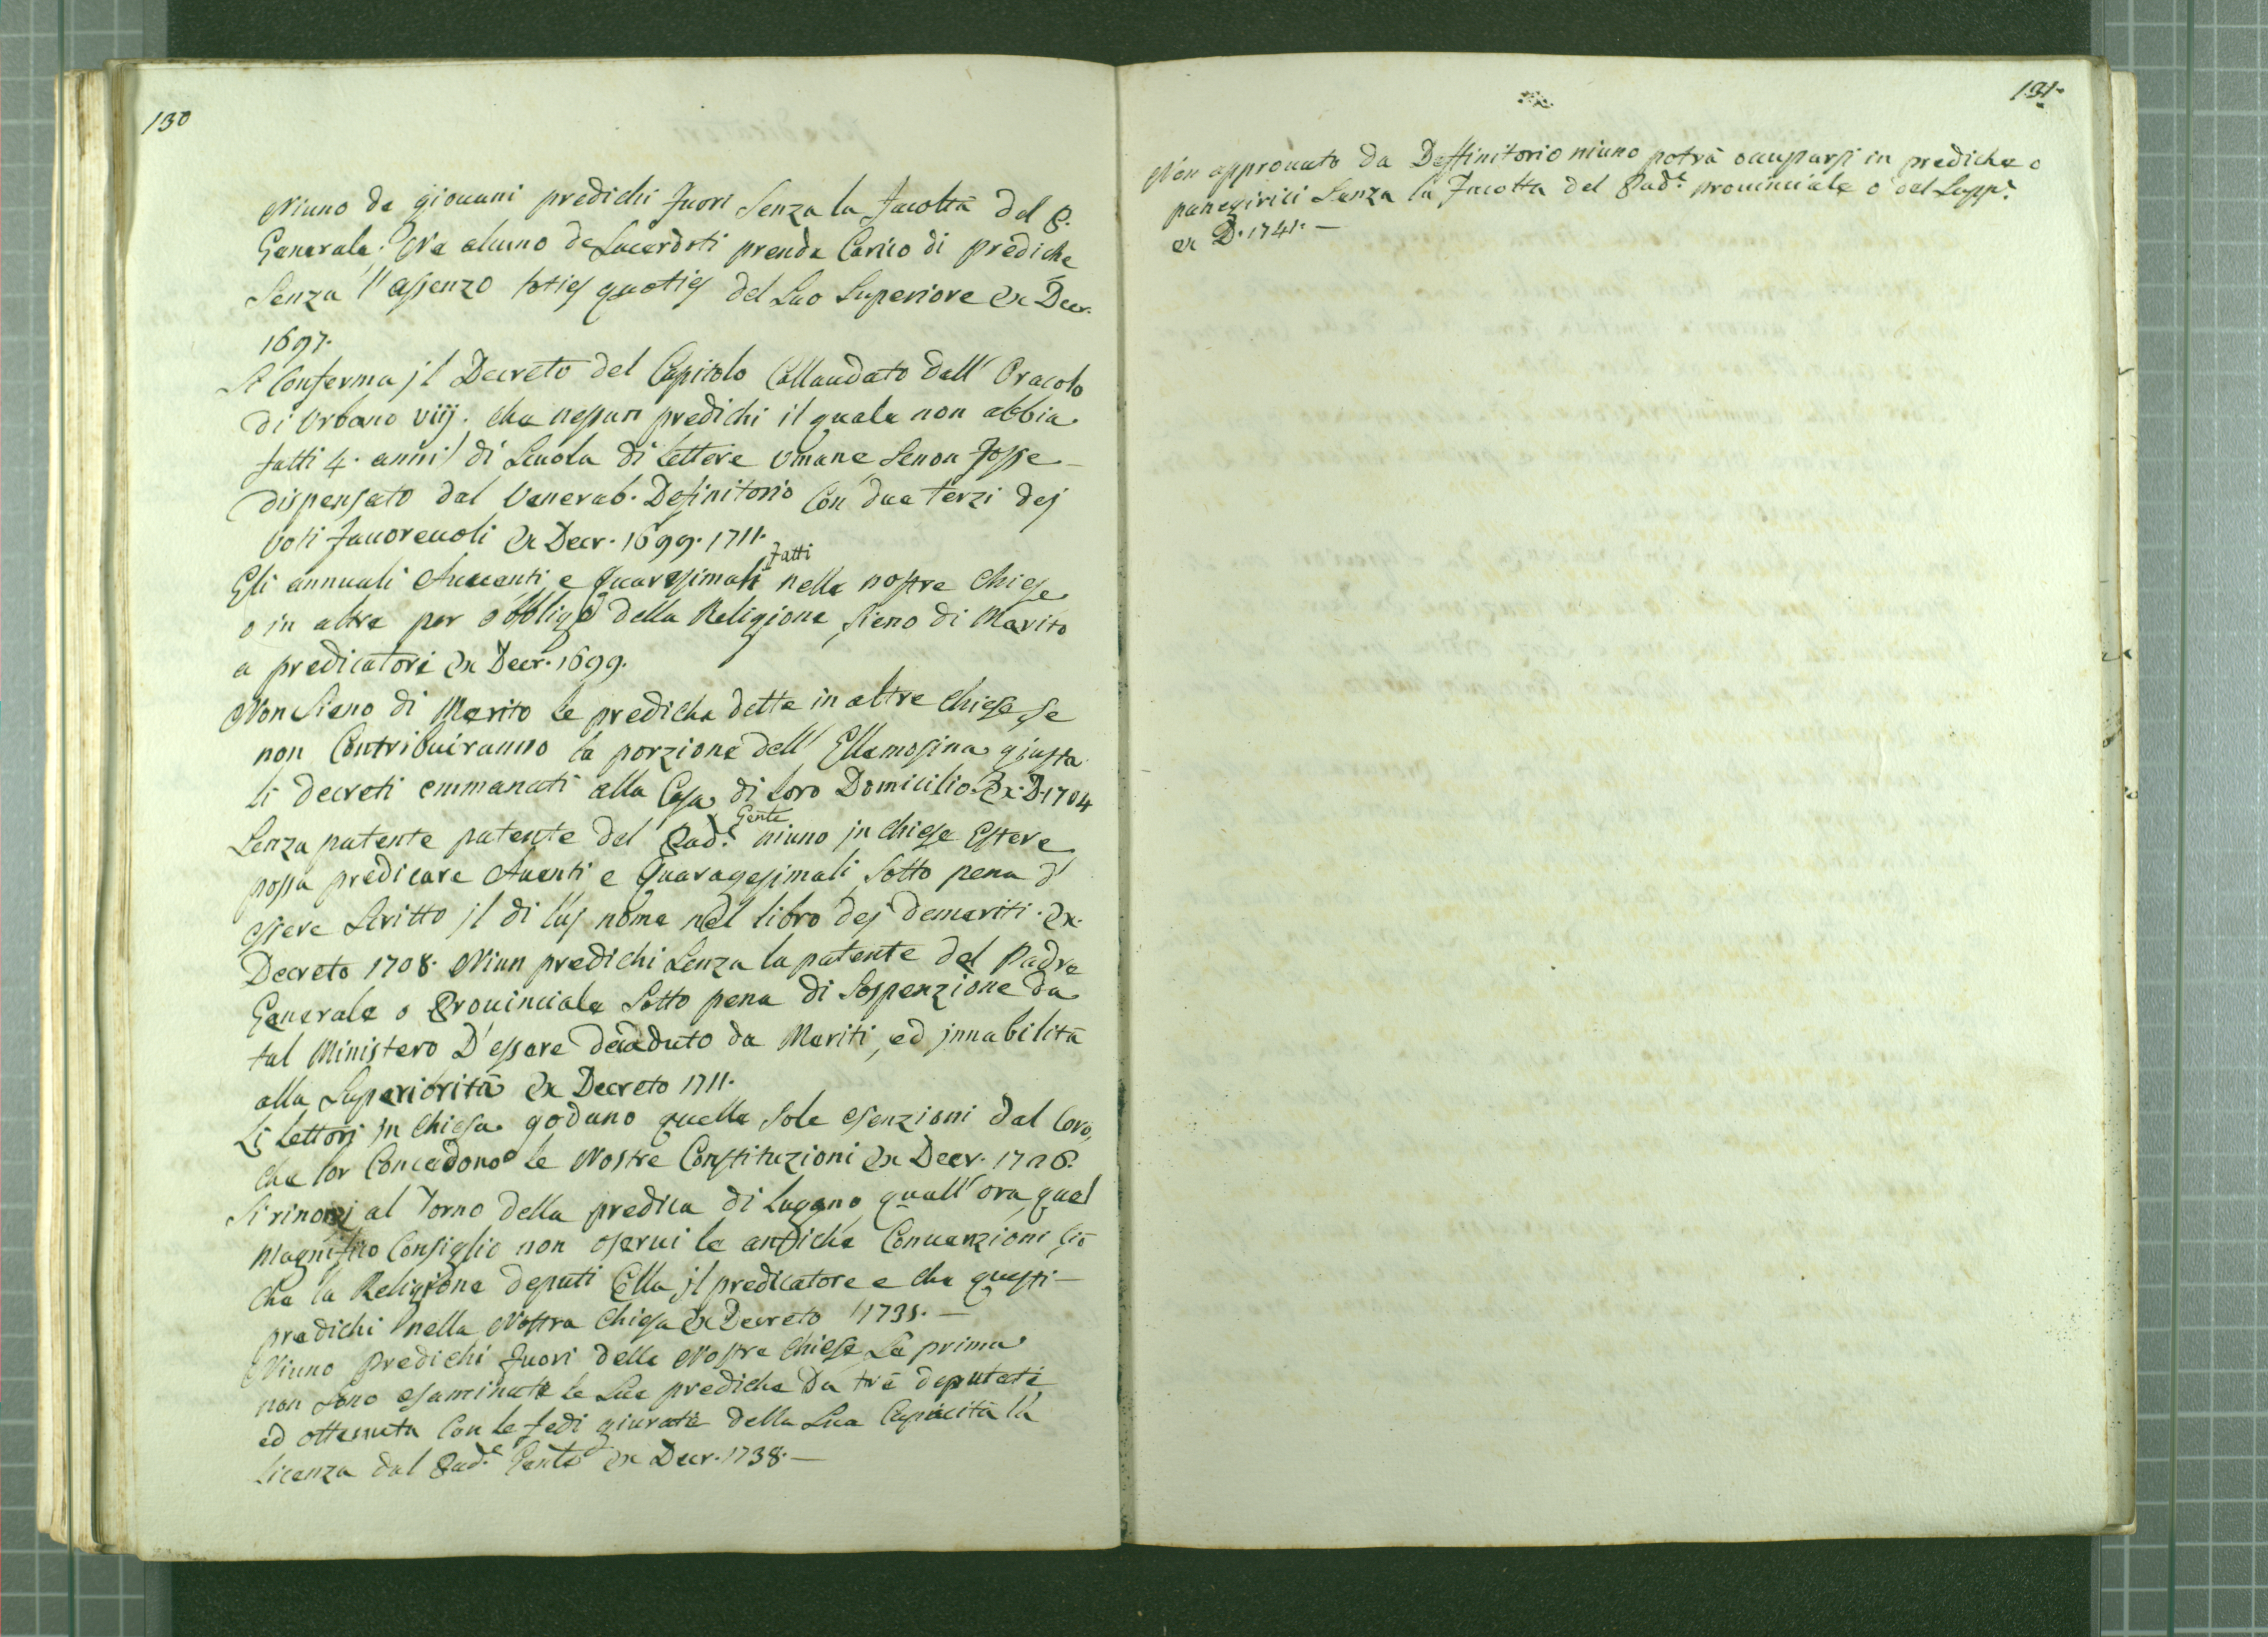 130
Niuno de giouani predichi fuori senza la facoltà del P.
Generale. Ne alcuno de Sacerdoti prenda Carico di prediche
senza l'assenzo toties quoties del suo Superiore ex Decr.
1697.
Si Conferma jl Decreto del Capitolo Collaudato dall' Oracolo
di Vrbano viij. che nessun predichi il quale non abbia
fatti 4. anni di Scuola di lettere Vmane senon fosse
dispensato dal Venerab. Definitorio Con due terzi dej
Voti fauoreuoli ex Decr. 1699. 1711.
fatti
Gli annuali Auuenti e Quaresimali nelle nostre Chiese
o in altre per obbligo della Religione, sieno di Merito
a predicatori ex Decr. 1699.
Non sieno di Merito le prediche dette in altre Chiese, se
non Contribuiranno la porzione dell' Ellemosina giusta
li decreti emmanati alla Casa di loro Domicilio. Ex D. 1704
Gente
Senza patente patente del Pad.e niuno jn chiese Estere
possa predicare Auenti e Quaragesimali sotto pena d'
essere scritto jl di luj nome nel libro dej demeriti. Ex.
Decreto 1708. Niun predichi senza la patente del Padre
Generale o Prouinciale sotto pena di sospenzione da
tal Ministero D'essere decaduto da Meriti, ed jnnabilità
alla Superiorità ex Decreto 1711.
Li Lettori jn Chiesa godano quelle sole esenzioni dal Coro,
che lor Concedono le Nostre Constituzioni ex Decr. 1726.
Si rinonzj al Torno della predica di Lugano, quall'ora quel
Magnifico Consiglio non oserui le antiche Conuenzioni, ciò
che la Religione deputi Colla jl predicatore e che questi
predichi nella Nostra Chiesa ex Decreto 1735.
Niuno predichi fuori delle Nostre Chiese se prima
non sono esaminate le sue prediche da trè deputati
ed ottenuta Con le fedi giurate della sua Capacità la
licenza dal Pad.e Gente ex Decr. 1738.
131.
Non approuato da Deffinitorio niuno potrà occuparsi in prediche o
panegirici senza la facoltà del Pad.e prouinciale o del Supp.e
ex D. 1741.